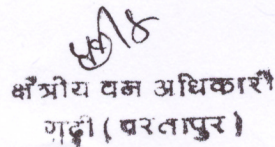 क्षेत्रीय वन अधिकारी
गढ़ी (परतापुर)